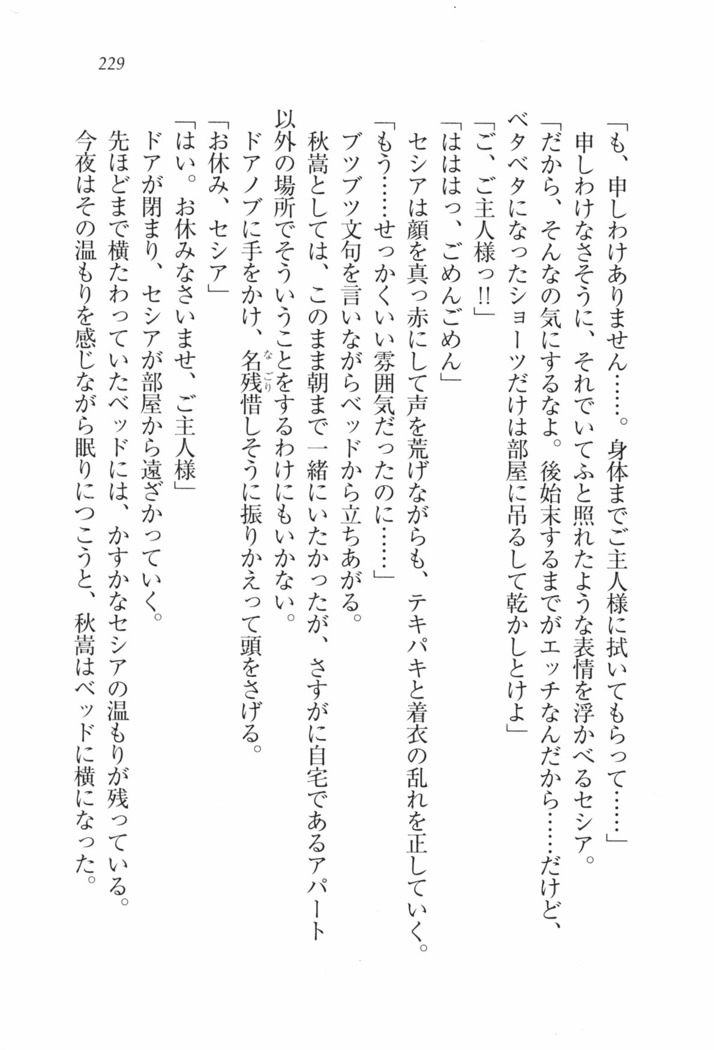 229
「も、申しわけありません……。身体までご主人様に拭いてもらって……」
申しわけなさそうに、それでいてふと照れたような表情を浮かべるセシア。
「だから、そんなの気にするなよ。後始末するまでがエッチなんだから……だけど、
ベタベタになったショーツだけは部屋に吊るして乾かしとけよ」
「ご、ご主人様っ!!」
「はははっ、ごめんごめん」
セシアは顔を真っ赤にして声を荒げながらも、テキパキと着衣の乱れを正していく。
「もう……せっかくいい雰囲気だったのに……」
ブツブツ文句を言いながらベッドから立ちあがる。
秋嵩としては、このまま朝まで一緒にいたかったが、さすがに自宅であるアパート
以外の場所でそういうことをするわけにもいかない。
ドアノブに手をかけ、名残惜しそうに振りかえって頭をさげる。
なごり
「お休み、セシア」
「はい。お休みなさいませ、ご主人様」
ドアが閉まり、セシアが部屋から遠ざかっていく。
先ほどまで横たわっていたベッドには、かすかなセシアの温もりが残っている。
今夜はその温もりを感じながら眠りにつこうと、秋嵩はベッドに横になった。